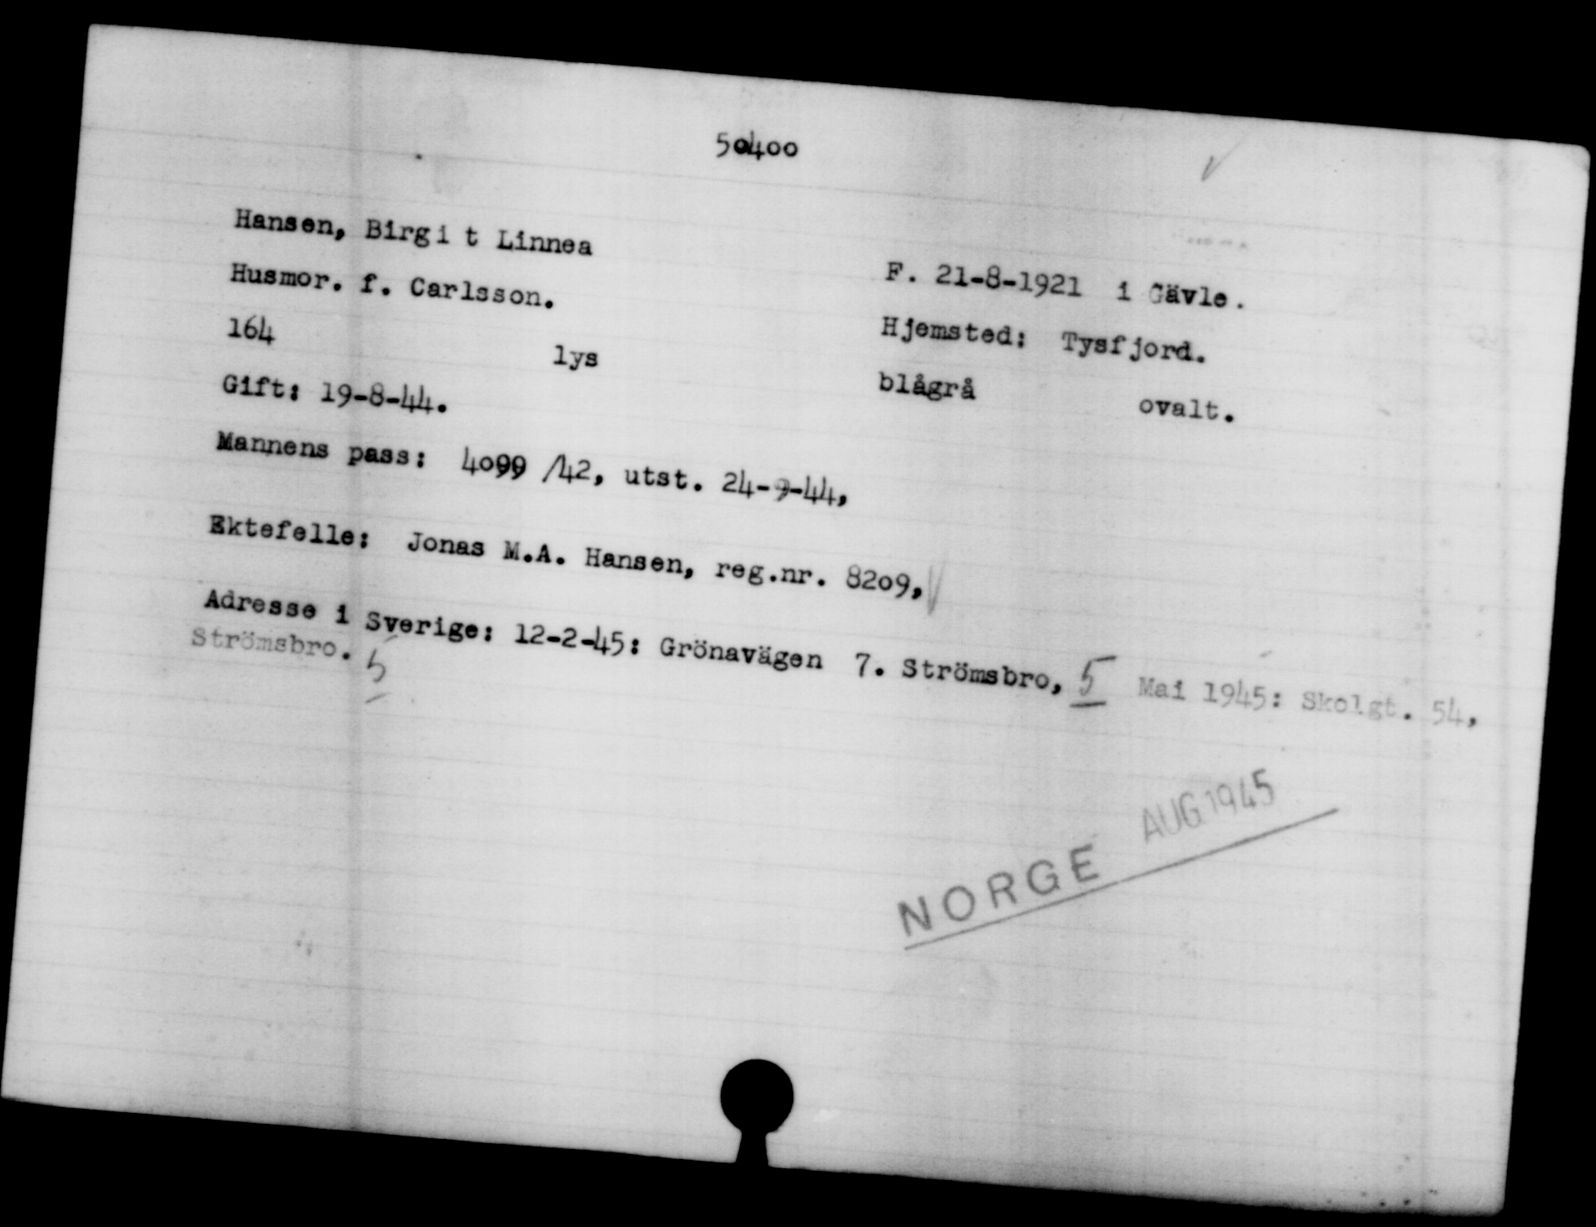 50400
Hansen, Birgi t Linnea
F. 21-8-1921 i Gävle.
Husmor. f. Carlsson.
Hjemsted: Tysfjord.
164 lys blågrå ovalt.
Gift: 19-8-44.
Mannens pass: 4099 /42, utst. 24-9-44,
Ektefelle: Jonas M.A. Hansen, reg.nr. 8209,
Adresse i Sverige: 12-2-45: Grönavägen 7. Strömsbro, 5 Mai 1945: Skolgt. 54,
Strömsbro. 5
NORGE AUG 1945